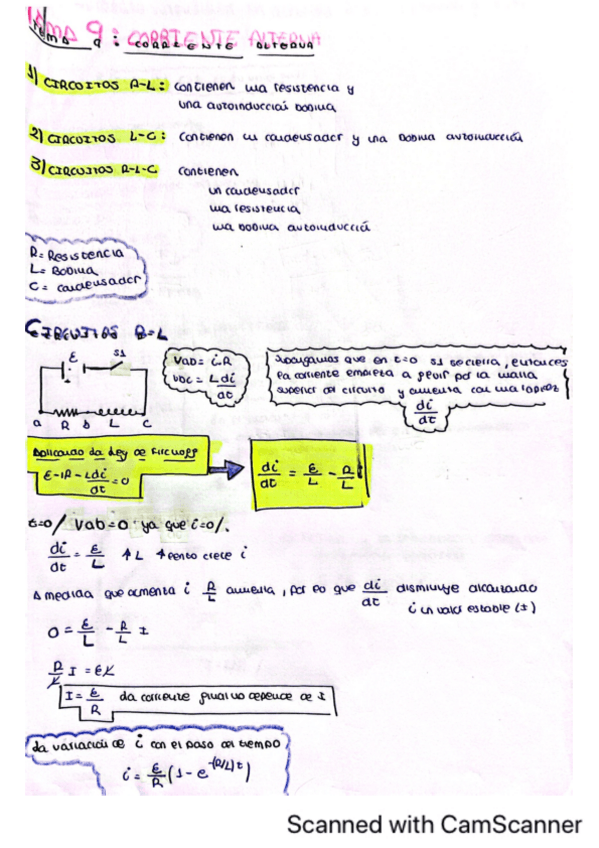 TEMA 9: CORRIENTE ALTERNA
1) CIRCUITOS R-L: contienen una resistencia y
una autoinducción bobina
2) CIRCUITOS L-C: contienen un condensador y una bobina autoinducción
3) CIRCUITOS R-L-C contienen
un condensador
una resistencia
una bobina autoinducción
R= Resistencia
L= Bobina
C= condensador
CIRCUITOS R-L
ε S1
a R b L C
Vab = iR
Vbc = L di/dt
Supongamos que en t=0 S1 se cierra, entonces
la corriente empieza a fluir por la malla
superior del circuito y aumenta con una rapidez
di/dt
Aplicando la Ley de Kirchoff
ε - iR - L di/dt = 0
di/dt = ε/L - R/L
t=0 / Vab=0 ya que i=0/.
di/dt = ε/L ↑L ↑lento crece i
A medida que aumenta i R/L aumenta, por lo que di/dt disminuye alcanzando
i un valor estable (I)
0 = ε/L - R/L I
R/L I = ε/L
I = ε/R la corriente final no depende de I
La variación de i con el paso del tiempo
i = ε/R (1 - e^-(R/L)t)
Scanned with CamScanner